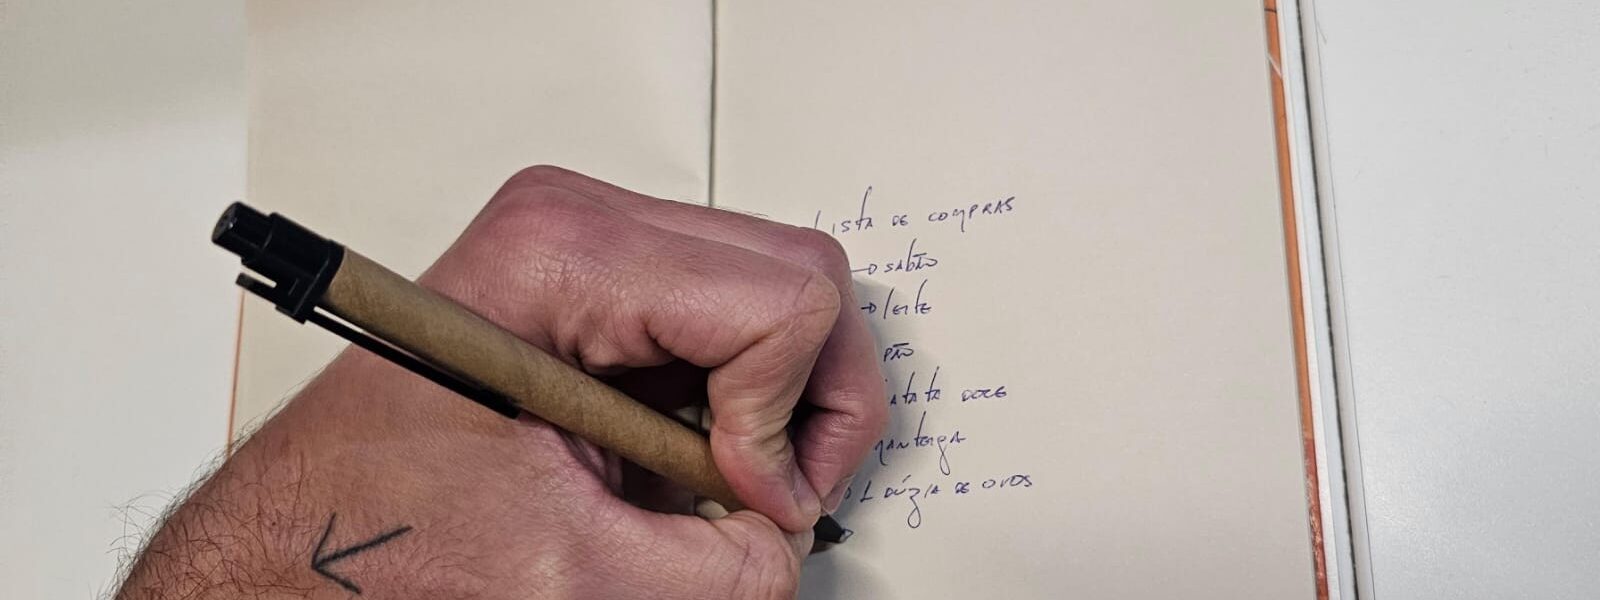 LISTA DE COMPRAS
sabão
leite
pão
atata doce
manteiga
1 dúzia de ovos